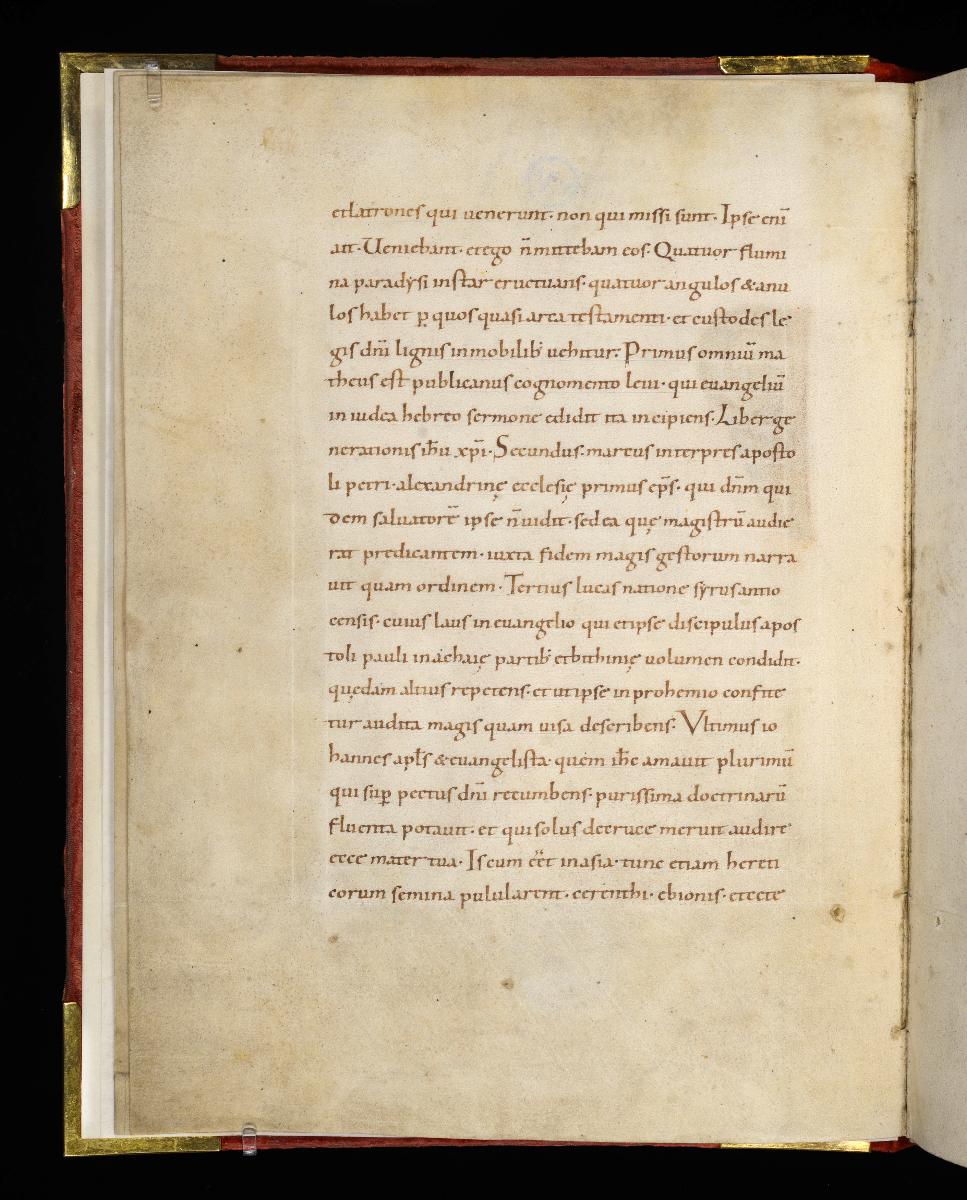 et latrones qui uenerunt· non qui missi sunt· Ipse eni̅
ait· Ueniebant· et ego n̅ mittebam eos· Quattuor flumi
na paradysi instar eructuans· quattuor angulos & anu
los habet ꝑ quos quasi arca testamenti· et custodes le
gis dn̅i lignis inmobilib; uehitur· Primus omniu̅ ma
theus est publicanus cognomento leui· qui euangeliu̅
in iudea hebreo sermone edidit ita incipiens· Liber ge
nerationis ih̅u xp̅i· Secundus· marcus interpres aposto
li petri· alexandrinę ecclesię primus ep̅s· qui dn̅m qui
dem saluatore̅ ipse n̅ uidit· sed ea quę magistru̅ audie
rat predicantem· iuxta fidem magis gestorum narra
uit quam ordinem· Tertius lucas natione syrus antio
censis· cuius laus in euangelio qui et ipse discipulus apos
toli pauli in achaię partib; et bithinię uolumen condidit·
quędam altius repetens· et ut ipse in prohemio confite
tur audita magis quam uisa describens· Vltimus io
hannes apl̅s & euangelista· quem ih̅c amauit plurimu̅
qui sup̅ pectus dn̅i recumbens· purissima doctrinaru̅
fluenta potauit· et qui solus de cruce meruit audire·
ecce mater tua· Is cum e̅e̅t in asia· tunc etiam hereti
corum semina pulularent· cerenthi· ebionis· et cete